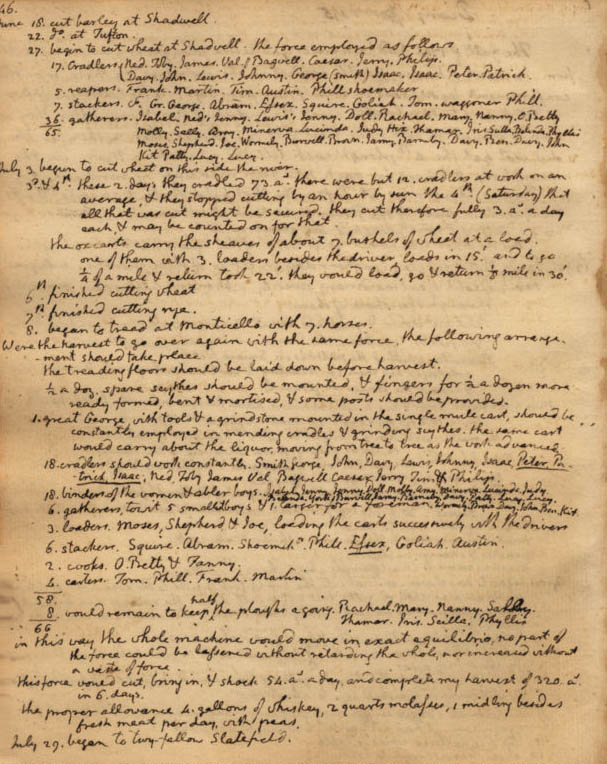 46.
June 18. cut barley at Shadwell.
22. do. at Tufton.
27. begin to cut wheat at Shadwell. the force employed as follows
17. Cradlers Ned. Toby. James. Val. Bagwell. Caesar. Jerry. Philip.
Davy. John. Lewis. Johnny. George (Smith) Isaac. Isaac. Peter. Patrick.
5. reapers. Frank. Martin. Tim. Austin. Phill shoemaker
7. stackers. Gr. George. Abram. Essex. Squire. Goliah. Tom. waggoner Phill.
36. gatherers. Isabel. Ned's Jenny. Lewis's Jenny. Doll. Rachael. Mary. Nanny. O. Betty
65. Molly. Sally. Amy. Minerva. Lucinda. Judy Hix. Thamar. Iris. Scilla. Belinda. Phyllis
Moses. Shepherd. Joe. Wormly. Burwell. Brown. Jamy. Barnaby. Davy. Ben. Davy. John
Kit. Patty. Lucy. Lucy.
July 3. began to cut wheat on this side the river.
3d. & 4th. these 2. days they cradled 73. as. there were but 12. cradlers at work on an
average, & they stopped cutting by an hour by sun the 4th (Saturday) that
all that was cut might be secured. they cut therefore fully 3. as. a day
each, & may be counted on for that.
the oxcarts carry the sheaves of about 7. bushels of wheat at a load.
one of them with 3. loaders besides the driver, loads in 15.' and to go
¼ of a mile & return took 22.' they would load, go & return ½ mile in 30'
6th. finished cutting wheat
7th. finished cutting rye.
8. began to tread at Monticello with 7. horses.
Were the harvest to go over again with the same force, the following arrange-
-ment should take place
the treading floors should be laid down before harvest.
½ a doz. spare scythes should be mounted, & fingers for ½ a dozen more
ready formed, bent & mortised, & some posts should be provided.
1. great George, with tools & a grindstone mounted in the single mule cart, should be
constantly employed in mending cradles & grinding scythes. the same cart
would carry about the liquor, moving from tree to tree as the work advanced.
18. cradlers should work constantly. Smith George, John, Davy, Lewis, Johnny, Isaac, Peter, Pa-
trick, Isaac, Ned Toby James Val Bagwell Caesar Jerry Tim & Philip.
18. binders of the women & abler boys. Isabel Jenny Jenny Doll Molly Amy Minerva Lucinda Judy
Belinda Burwell Jamy Barnaby Davy Patty Lucy Lucy.
6. gatherers, to wit 5 smallest boys & 1. larger for a foreman. Wormly Brown Davy John Ben. Kit.
3. loaders. Moses, Shepherd & Joe, loading the carts successively with the drivers
6. stackers. Squire. Abram. Shoemr. Phill. Essex, Goliah. Austin.
2. cooks. O. Betty & Fanny.
4. carters. Tom. Phill. Frank. Martin
58.
8. would remain to keep half the ploughs agoing. Rachael. Mary. Nanny. Sally.
66 Thamar. Iris. Scilla. Phyllis
in this way the whole machine would move in exact equilibrio, no part of
the force could be lessened without retarding the whole, nor increased without
a waste of force.
this force would cut, bring in, & shock 54. as. a day, and complete my harvest of 320. as.
in 6. days.
the proper allowance 4. gallons of whiskey, 2 quarts molasses, 1 midling besides
fresh meat per day, with peas.
July 29. began to twy-fallow Slatefield.